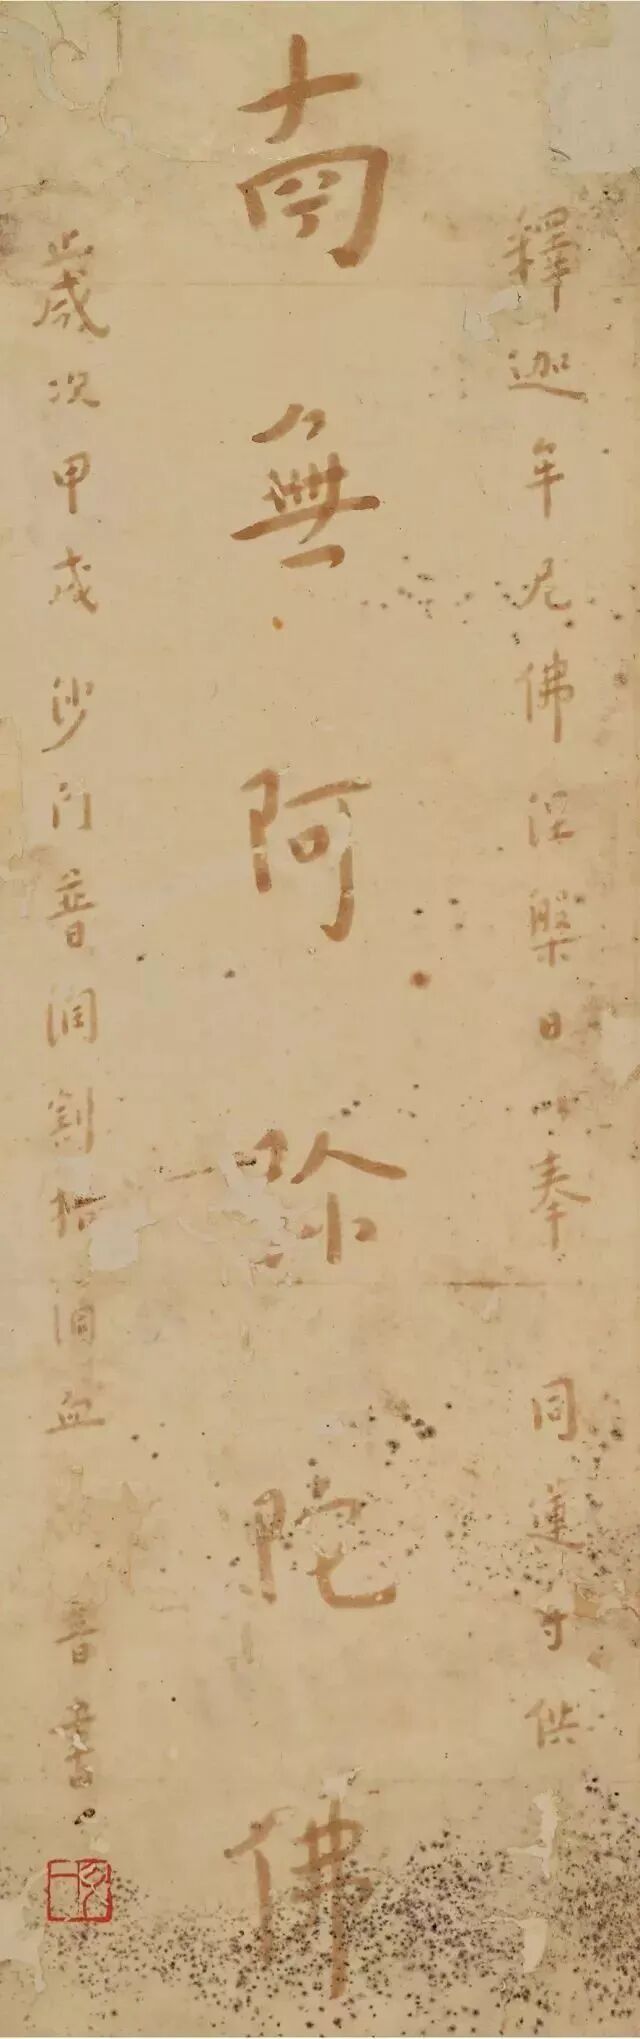 釋迦牟尼佛涅槃日奉 同蓮寺供
南無阿弥陀佛
歲次甲戌沙門普潤割指血 音書